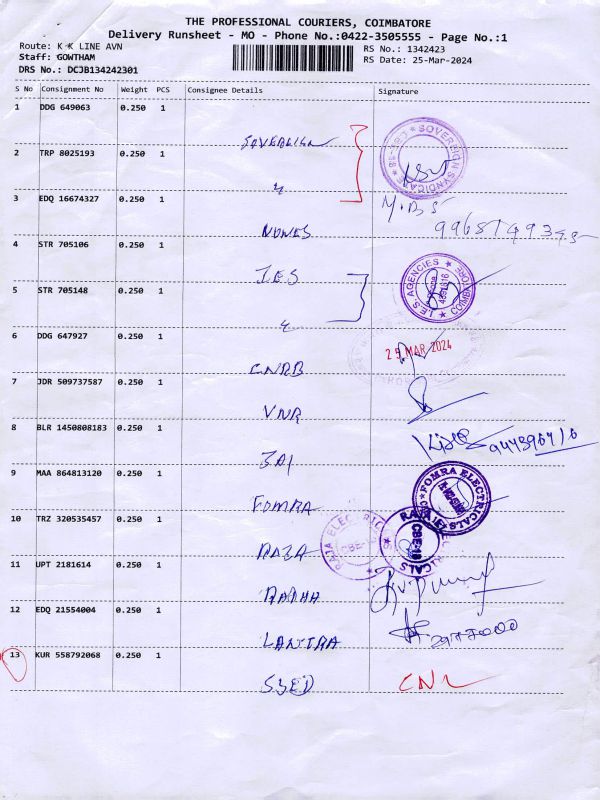 THE PROFESSIONAL COURIERS, COIMBATORE
Delivery Runsheet - MO - Phone No.:0422-3505555 - Page No.:1
Route: K K LINE AVN
RS No.: 1342423
Staff: GOWTHAM
RS Date: 25-Mar-2024
DRS No.: DCJB134242301
S No Consignment No Weight PCS Consignee Details Signature
1 DDG 649063 0.250 1
SOVEREIGN
SOVEREIGN SYNDICATE CBE-18
2 TRP 8025193 0.250 1
"
3 EDQ 16674327 0.250 1
M.B.S
NOWES
4 STR 705106 0.250 1
I.E.S
I.E.S AGENCIES COIMBATORE
5 STR 705148 0.250 1
"
6 DDG 647927 0.250 1
25 MAR 2024
CNRB
7 JDR 509737587 0.250 1
VNR
8 BLR 1450808183 0.250 1
JAI
9 MAA 864813120 0.250 1
FOMRA
FOMRA ELECTRICALS
10 TRZ 320535457 0.250 1
RAJA
RAJA ELECTRICALS CBE-18
11 UPT 2181614 0.250 1
RADHA
12 EDQ 21554004 0.250 1
LANTRA
13 KUR 558792068 0.250 1
SYED
CNL